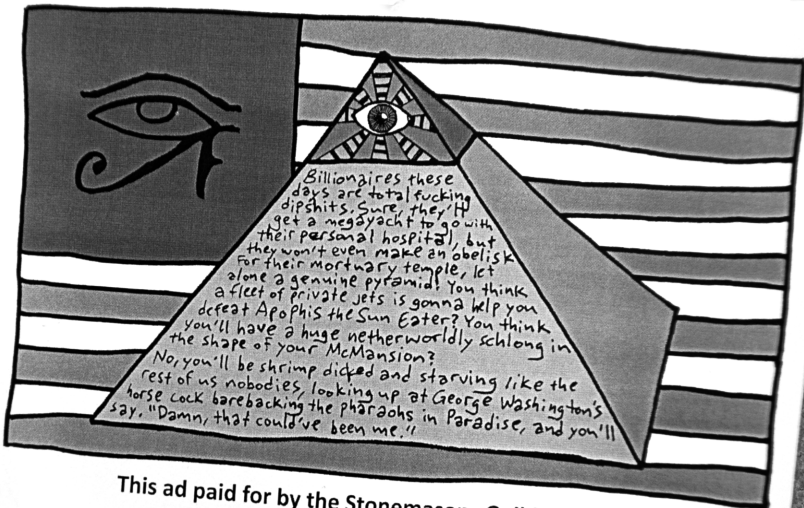 Billionaires these
days are total fucking
dipshits. Sure, they'll
get a megayacht to go with
their personal hospital, but
they won't even make an obelisk
for their mortuary temple, let
alone a genuine pyramid! You think
a fleet of private jets is gonna help you
defeat Apophis the Sun Eater? You think
you'll have a huge netherworldly schlong in
the shape of your McMansion?
No, you'll be shrimp dicked and starving like the
rest of us nobodies, looking up at George Washington's
horse cock barebacking the pharaohs in Paradise, and you'll
say, "Damn, that could've been me."
This ad paid for by the